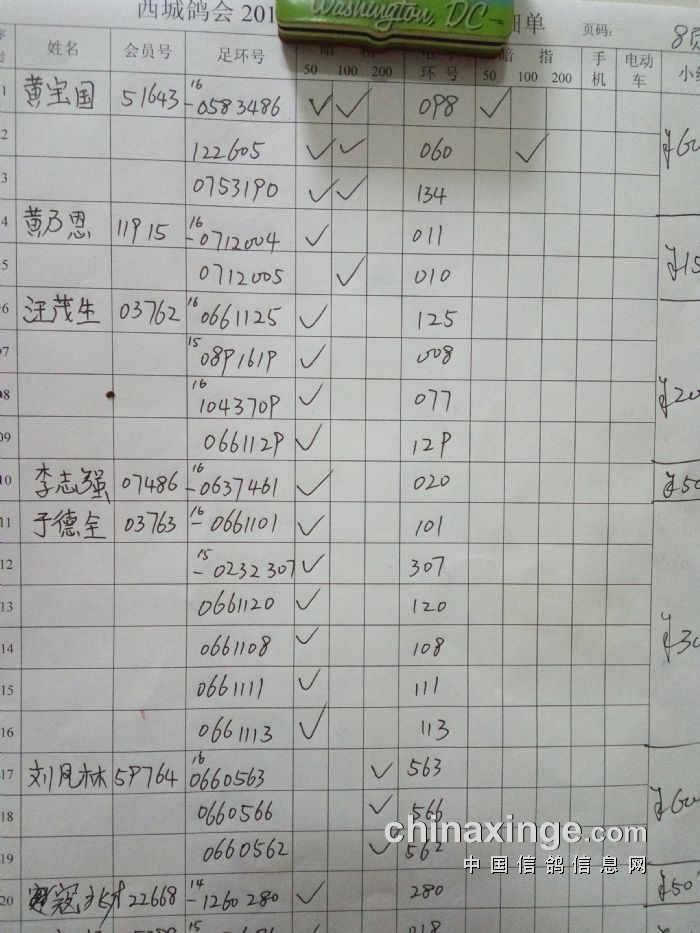 西城鸽会 201
Washington, DC
细单 页码: 8页
号 姓名 会员号 足环号 暗 指 电子环号 暗 指 手机 电动车 小
50 100 200 50 100 200
1 黄宝国 51643 16-0583486 ✓ ✓ 098 ✓
2 122605 ✓ ✓ 060 ✓ ¥60
3 0753190 ✓ ✓ 134
4 黄乃恩 11915 16-0712004 ✓ 011
5 0712005 ✓ 010 ¥15
6 汪茂生 03762 16 0661125 ✓ 125
07 15 0891619 ✓ 008
08 16 1043709 ✓ 077 ¥20
09 0661129 ✓ 129
10 李志强 07486 16-0637461 ✓ 020 ¥50
11 于德全 03763 16-0661101 ✓ 101
12 15-0232307 ✓ 307
13 0661120 ✓ 120
14 0661108 ✓ 108 ¥30
15 0661111 ✓ 111
16 0661113 ✓ 113
17 刘凤林 59764 16 0660563 ✓ 563
18 0660566 ✓ 566 ¥60
19 0660562 ✓ 562
chinaxinge.com
中国信鸽信息网
20 寇 22668 14-1260280 ✓ 280 ¥50
15 018